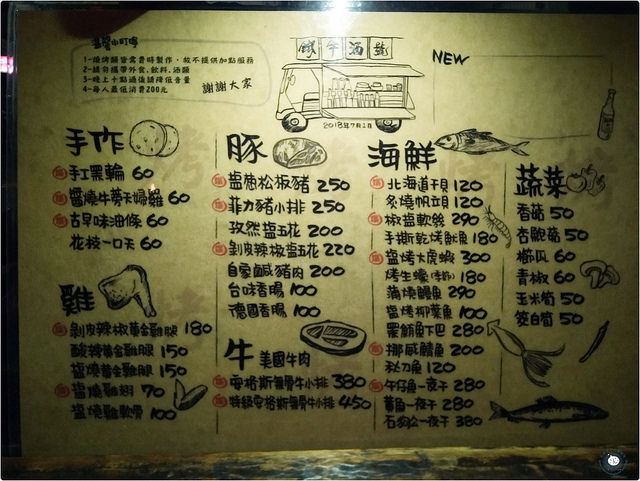 溫馨小叮嚀
1-燒烤類皆需費時製作,故不提供加點服務
2-請勿攜帶外食,飲料,酒類
3-晚上十點過後請降低音量
4-每人最低消費200元
謝謝大家
鐵牛酒號
2018年7月1日
NEW
手作
手工黑輪 60
醬燒牛蒡天婦羅 60
古早味油條 60
花枝一口天 60
雞
剝皮辣椒黃金雞腿 180
酸辣黃金雞腿 150
塩燒黃金雞腿 150
塩燒雞翅 70
塩燒雞軟骨 100
豚
塩烤松板豬 250
菲力豬小排 250
孜然塩五花 200
剝皮辣椒塩五花 220
自家鹹豬肉 200
台味香腸 100
德國香腸 100
牛 美國牛肉
安格斯無骨牛小排 380
特級安格斯無骨牛小排 450
海鮮
北海道干貝 120
炙燒帆立貝 120
椒塩軟絲 290
手撕乾烤魷魚 180
塩烤大虎蝦 300
烤生蠔 180
蒲燒鰻魚 290
塩烤柳葉魚 100
黑鮪魚下巴 280
挪威鯖魚 200
秋刀魚 120
午仔魚一夜干 280
黃魚一夜干 280
石狗公一夜干 380
蔬菜
香菇 50
杏鮑菇 50
櫛瓜 60
青椒 60
玉米筍 50
茭白筍 50